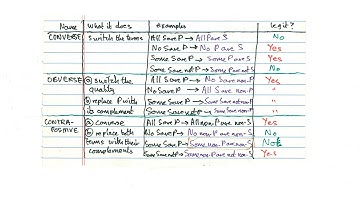 Name What it does Examples legit?
CONVERSE switch the terms All S are P → All P are S No
No S are P → No P are S Yes
Some S are P → Some P are S Yes
Some S are not P → Some P are not S No
OBVERSE ① switch the All S are P → No S are non-P Yes
quality No S are P → All S are non-P "
② replace P with Some S are P → Some S are not non-P "
its complement Some S are not P → Some S are non-P "
CONTRA- ① Converse All S are P → All non-P are non-S Yes
POSITIVE ② replace both No S are P → No non-P are non-S No
terms with their Some S are P → Some non-P are non-S No
complements Some S are not P → Some non-P are not non-S Yes